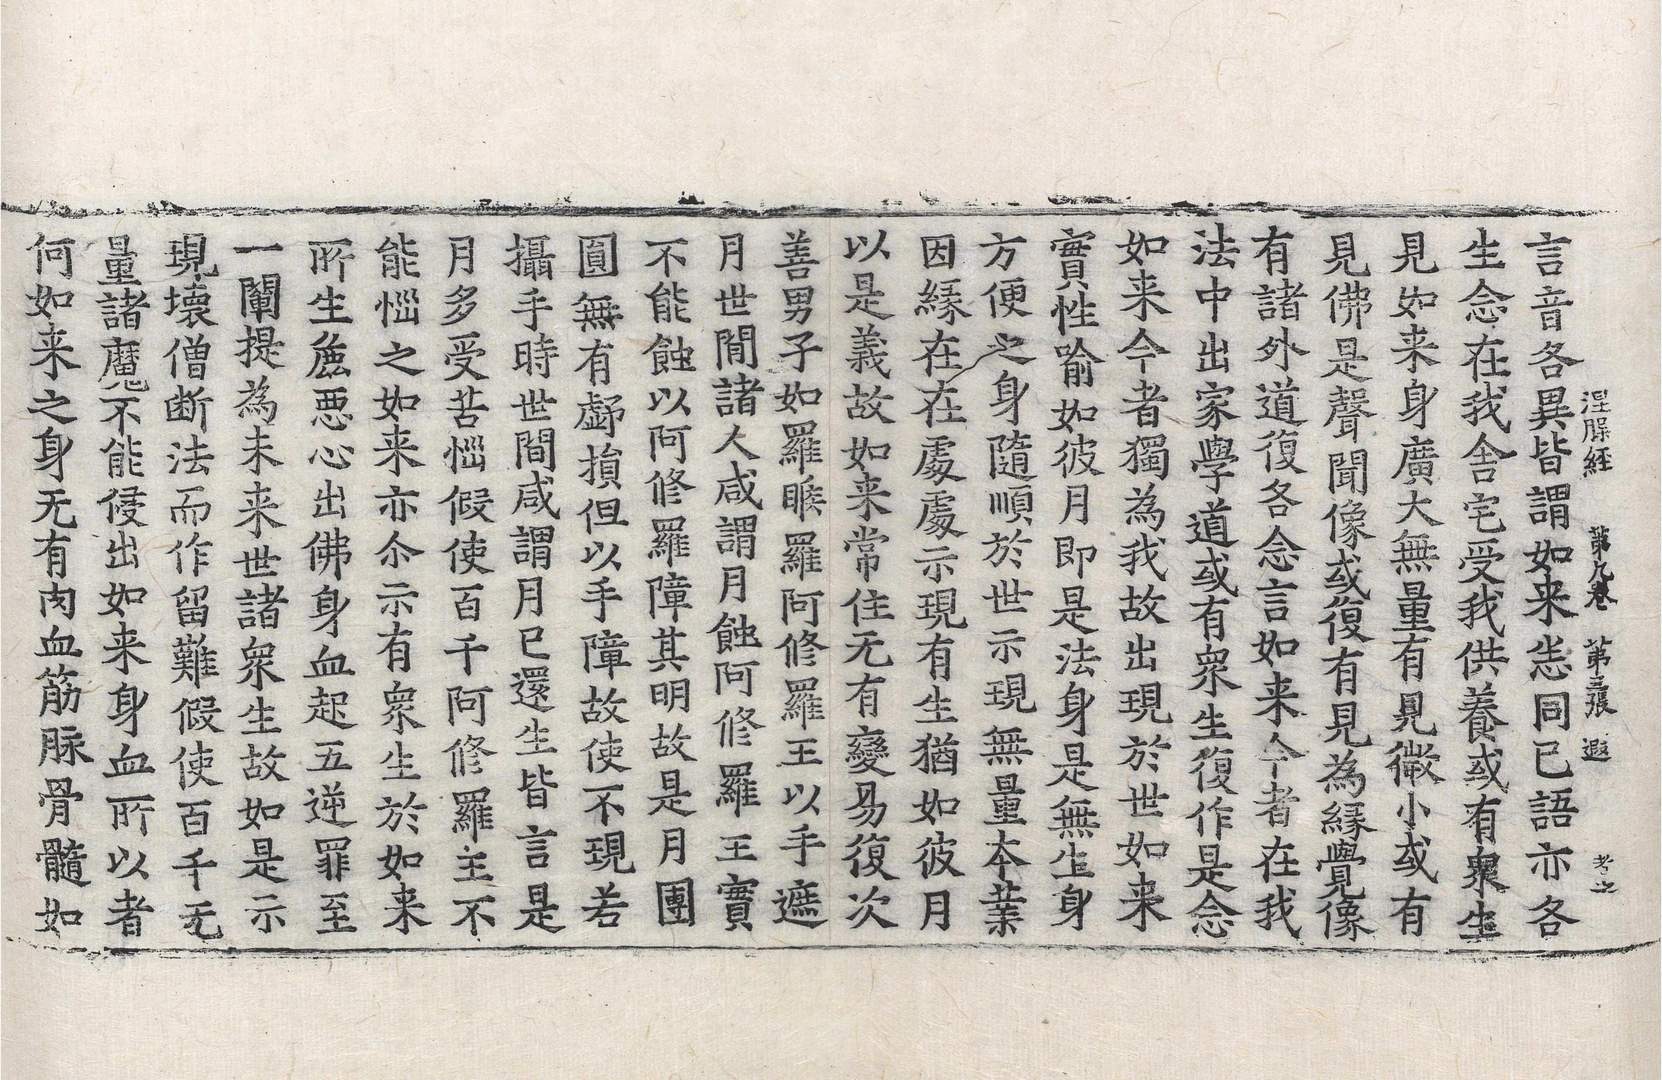 涅槃経 第九卷 第三張 遐 考之
言音各異皆謂如来悉同已語亦各
生念在我舍宅受我供養或有衆生
見如来身廣大無量有見微小或有
見佛是聲聞像或復有見為緣覺像
有諸外道復各念言如来今者在我
法中出家學道或有衆生復作是念
如来今者獨為我故出現於世如来
實性喻如彼月即是法身是無生身
方便之身隨順於世示現無量本業
因緣在在處處示現有生猶如彼月
以是義故如来常住无有變易復次
善男子如羅睺羅阿修羅王以手遮
月世閒諸人咸謂月蝕阿修羅王實
不能蝕以阿修羅障其明故是月團
圓無有虧損但以手障故使不現若
攝手時世間咸謂月已還生皆言是
月多受苦惱假使百千阿修羅王不
能惱之如来亦尒示有衆生於如来
所生麁惡心出佛身血起五逆罪至
一闡提為未来世諸衆生故如是示
現壞僧断法而作留難假使百千无
量諸魔不能侵出如来身血所以者
何如来之身无有肉血筋脉骨髓如